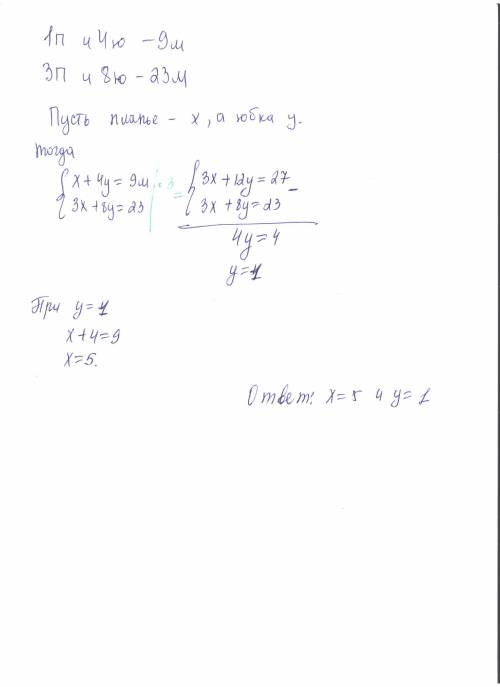 1п и 4ю - 9м
3П и 8ю - 23м
Пусть платье - x, а юбка y.
тогда
x + 4y = 9м | · 3 = 3x + 12y = 27 -
3x + 8y = 23 3x + 8y = 23
4y = 4
y = 1
При y = 1
x + 4 = 9
x = 5.
Ответ: x = 5 и y = 1